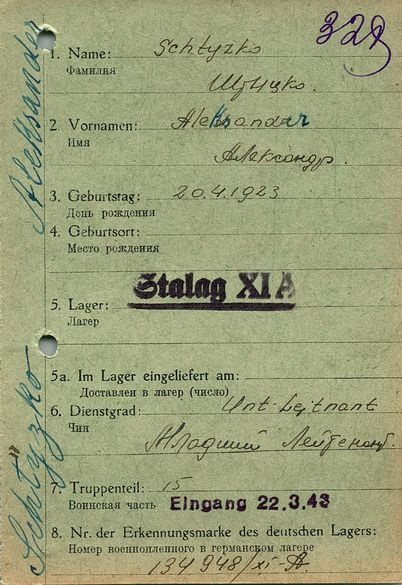 329
1. Name: Schtyzko
Фамилия
Штыцко.
2. Vornamen: Aleksandr
Имя
Александр.
3. Geburtstag: 20.4.1923
День рождения
4. Geburtsort:
Место рождения
Stalag XI A
5. Lager:
Лагер
5a. Im Lager eingeliefert am:
Доставлен в лагер (число)
6. Dienstgrad: Unt. Lejtnant
Чин
Младший Лейтенант
7. Truppenteil: 15
Воинская часть
Eingang 22.3.43
8. Nr. der Erkennungsmarke des deutschen Lagers:
Номер военнопленного в германском лагере
134948/XI-A
Schtyzko Aleksander